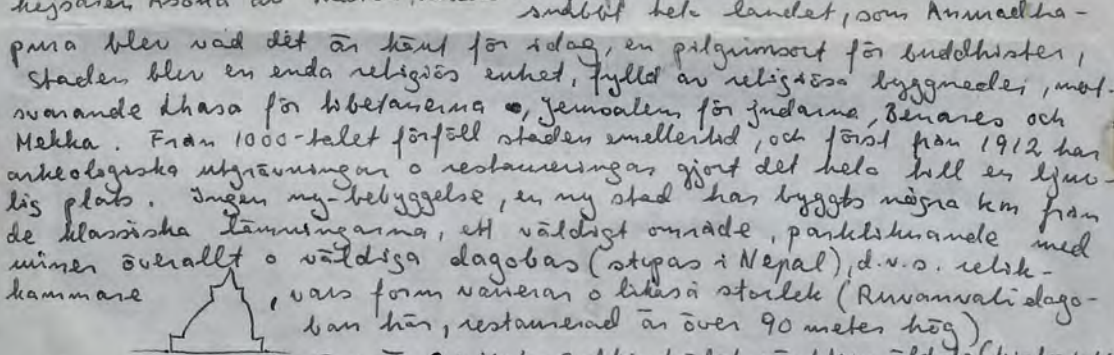 kejsaren Asoka
snabbt hela landet, som Anuradha-
pura blev vad det är känt för idag, en pilgrimsort för buddhister,
staden blev en enda religiös enhet, fylld av religiösa byggnader, mot-
svarande Lhasa för tibetanerna, Jerusalem för judarna, Benares och
Mekka. Från 1000-talet förföll staden emellertid, och först från 1912 har
arkeologiska utgrävningar o restaureringar gjort det hela till en ljuv-
lig plats. Ingen ny-bebyggelse, en ny stad har byggts några km från
de klassiska lämningarna, ett väldigt område, parkliknande med
ruiner överallt o väldiga dagobas (stupas i Nepal), d.v.s. relik-
kammare, vars form varierar o likaså storlek (Ruvanvali dago-
ban här, restaurerad är över 90 meter hög)